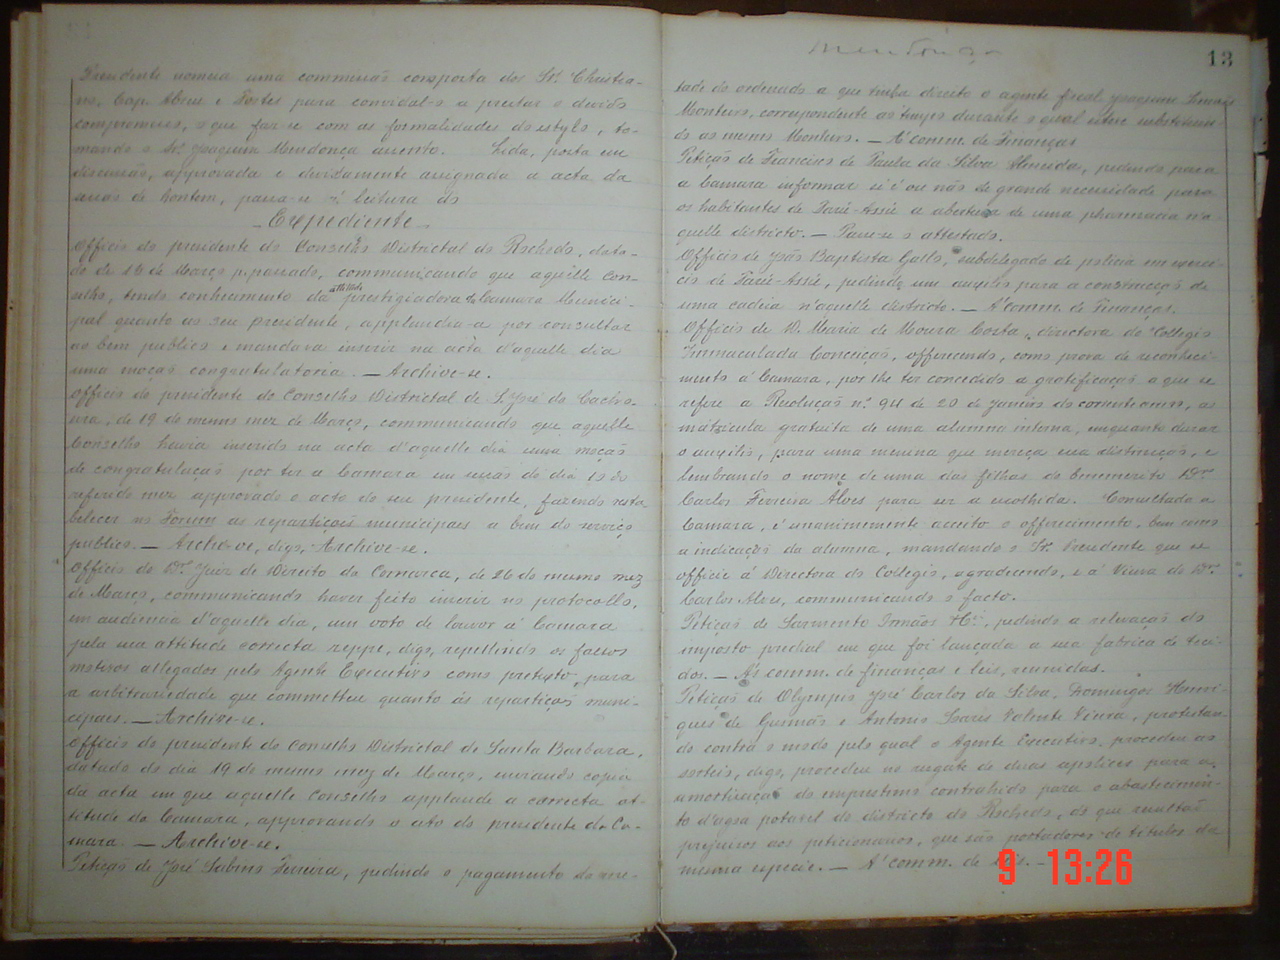 Presidente nomeia uma commissão composta dos Srs. Christia-
no, Cap. Abreu e Fortes para convidal-o a prestar o devido
compromisso, o que faz-se com as formalidades do estylo, to-
mando o Sr. Joaquim Mendonça assento. Lida, posta em
discussão, approvada e devidamente assignada a acta da
sessão de hontem, passa-se á leitura do
Expediente
Officio do presidente do Conselho Districtal do Rochedo, data-
do de 18 de Março p. passado, communicando que aquelle Con-
selho, tendo conhecimento da attitude prestigiadora da Camara Munici-
pal quanto ao seu presidente, applaudia-a por consultar
ao bem publico e mandava inserir na acta d'aquelle dia
uma moção congratulatoria. — Archive-se.
Officio do presidente do Conselho Districtal de S. José da Cacho-
eira, de 19 do mesmo mez de Março, communicando que aquelle
Conselho havia inserido na acta d'aquelle dia uma moção
de congratulação por ter a Camara em sessão do dia 15 do
referido mez approvado o acto do seu presidente, fazendo resta
belecer no Forum as repartições municipaes a bem do serviço
publico. — Archive-se, digo, Archive-se.
Officio do Dr. Juiz de Direito da Comarca, de 26 do mesmo mez
de Março, communicando haver feito inserir no protocollo,
em audiencia d'aquelle dia, um voto de louvor á Camara
pela sua attitude correcta reppe, digo, repellindo os falsos
motivos allegados pelo Agente Executivo como pretexto para
a arbitrariedade que commetteu quanto ás repartições muni-
cipaes. — Archive-se.
Officio do presidente do Conselho Districtal de Santa Barbara,
datado do dia 19 do mesmo mez de Março, enviando copia
da acta em que aquelle Conselho applaude a correcta at-
titude da Camara, approvando o acto do presidente da Ca-
mara. — Archive-se.
Petição de José Sabino Ferreira, pedindo o pagamento da me-
Mendonça
13
tade do ordenado a que tinha direito o agente fiscal Joaquim
Monteiro, correspondente ao tempo durante o qual esteve substituin-
do ao mesmo Monteiro. — A' comm. de Finanças
Petição de Francisco de Paula da Silva Almeida, pedindo para
a Camara informar si é ou não de grande necessidade para
os habitantes de Taré-Assú a abertura de uma pharmacia n'a-
quelle districto. — Passe-se o attestado.
Officio de João Baptista Gallo, subdelegado de policia em exerci-
cio de Taré-Assú, pedindo um auxilio para a construcção de
uma cadeia n'aquelle districto. — A' comm. de Finanças.
Officio de D. Maria de Moura Costa, directora do Collegio
Immaculada Conceição, offerecendo, como prova de reconheci-
mento á Camara, por lhe ter concedido a gratificação a que se
refere a Resolução nº. 94 de 20 de Janeiro do corrente anno, a
matricula gratuita de uma alumna interna, emquanto durar
o auxilio, para uma menina que mereça essa distincção, e
lembrando o nome de uma das filhas do benemerito Dr.
Carlos Ferreira Alves para ser a escolhida. Consultada a
Camara, é unanimemente acceito o offerecimento, bem como
a indicação da alumna, mandando o Sr. Presidente que se
officie á Directora do Collegio, agradecendo, e á Viuva do Dr.
Carlos Alves, communicando o facto.
Petição de Sarmento Irmãos & Cia., pedindo a relevação do
imposto predial em que foi lançada a sua fabrica de teci-
dos. — A's comm. de finanças e leis, reunidas.
Petição de Olympio José Carlos da Silva, Domingos Henri-
ques de Gusmão e Antonio Soares Valente Vieira, protestan-
do contra o modo pelo qual o Agente Executivo, procedeu ao
sorteio, digo, procedeu no resgate de duas apolices para a
amortização do emprestimo contrahido para o abastecimen-
to d'agua potavel do districto do Rochedo, do que resultão
prejuizos aos peticionarios, que são portadores de titulos da
mesma especie. — A' comm. de
9 13:26